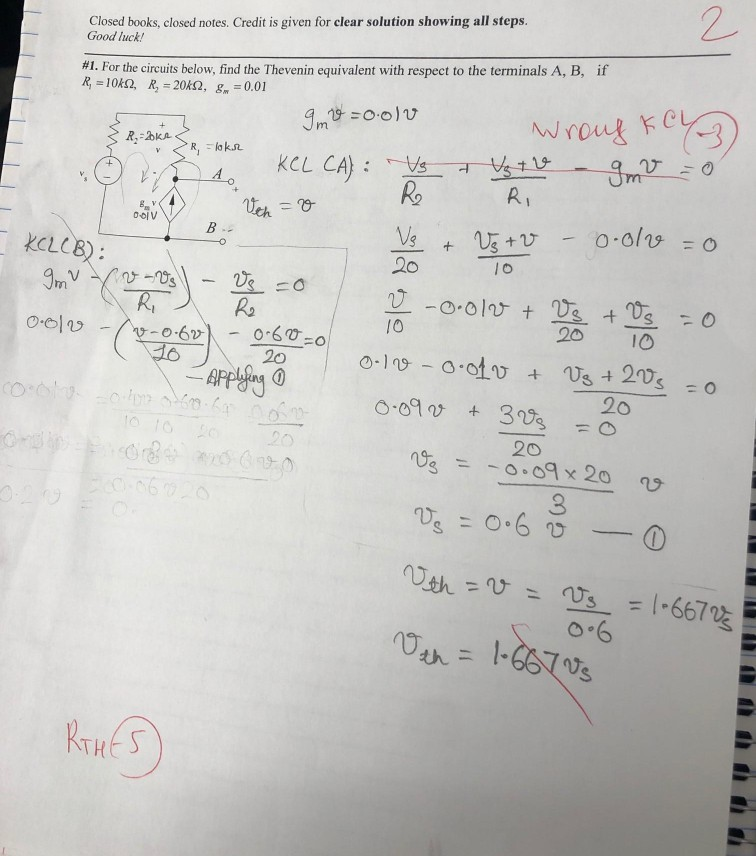 Closed books, closed notes. Credit is given for clear solution showing all steps.
Good luck!
2
#1. For the circuits below, find the Thevenin equivalent with respect to the terminals A, B, if
R₁ = 10kΩ, R₂ = 20kΩ, gₘ = 0.01
gₘv = 0.01v
Wrong KCL -3
R₂=20kΩ
+
v
-
R₁ = 10kΩ
vₛ
+
-
A
gₘv
0.01V
B
Vth = v
KCL (A) : Vs/R₂ + (Vs+v)/R₁ - gₘv = 0
Vs/20 + (Vs+v)/10 - 0.01v = 0
v/10 - 0.01v + Vs/20 + Vs/10 = 0
0.1v - 0.01v + (Vs + 2Vs)/20 = 0
0.09v + 3Vs/20 = 0
Vs = (-0.09 × 20)/3 v
Vs = 0.6 v — ①
Vth = v = Vs/0.6 = 1.667Vs
Vth = 1.667Vs
KCL(B):
gₘv - ((v-vs)/R₁) - vs/R₂ = 0
0.01v - ((v-0.6v)/10) - 0.6v/20 = 0
- Applying ①
RTH -5